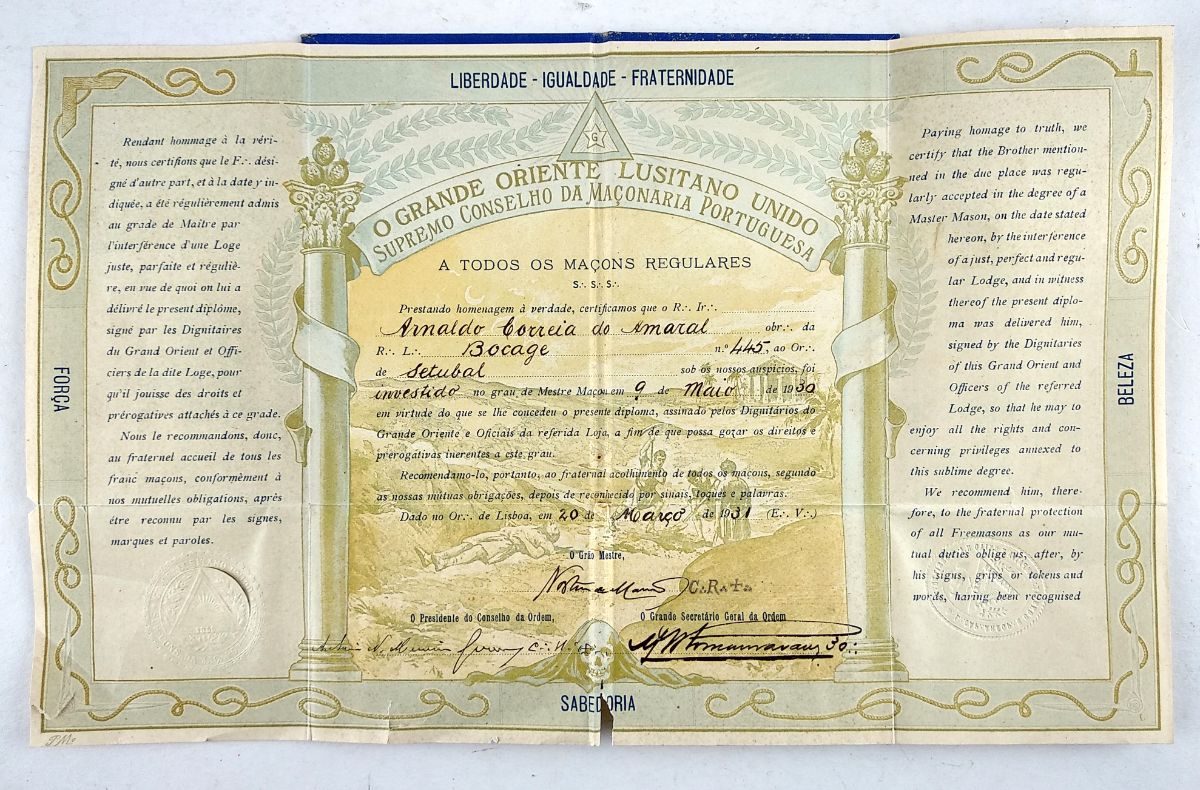 LIBERDADE - IGUALDADE - FRATERNIDADE
G
O GRANDE ORIENTE LUSITANO UNIDO
SUPREMO CONSELHO DA MAÇONARIA PORTUGUESA
A TODOS OS MAÇONS REGULARES
S∴ S∴ S∴
Prestando homenagem à verdade, certificamos que o R∴ Ir∴
Arnaldo Correia do Amaral obr∴ da
R∴ L∴ Bocage n.º 445, ao Or∴
de Setubal sob os nossos auspícios, foi
investido no grau de Mestre Maçon em 9 de Maio de 1930
em virtude do que se lhe concedeu o presente diploma, assinado pelos Dignitários do
Grande Oriente e Oficiais da referida Loja, a fim de que possa gozar os direitos e
prerogativas inerentes a este grau.
Recomendamo-lo, portanto, ao fraternal acolhimento de todos os maçons, segundo
as nossas mútuas obrigações, depois de reconhecido por sinais, toques e palavras.
Dado no Or∴ de Lisboa, em 20 de Março de 1931 (E∴ V∴)
O Grão Mestre,
C∴R∴+∴
O Presidente do Conselho da Ordem,
O Grande Secretário Geral da Ordem
30∴
Rendant hommage à la véri-
té, nous certifions que le F∴ dési-
gné d'autre part, et à la date y in-
diquée, a été régulièrement admis
au grade de Maître par
l'interférence d'une Loge
juste, parfaite et réguliè-
re, en rue de quoi on lui a
délivré le present diplôme,
signé par les Dignitaires
du Grand Orient et Offi-
ciers de la dite Loge, pour
qu'il jouisse des droits et
prérogatives attachés à ce grade.
Nous le recommandons, donc,
au fraternel accueil de tous les
franc maçons, conformèment à
nos mutuelles obligations, après
étre reconnu par les signes,
marques et paroles.
Paying homage to truth, we
certify that the Brother mention-
ned in the due place was regu-
larly accepted in the degree of a
Master Mason, on the date stated
hereon, by the interference
of a just, perfect and regu-
lar Lodge, and in witness
thereof the present diplo-
ma was delivered him,
signed by the Dignitaries
of this Grand Orient and
Officers of the referred
Lodge, so that he may to
enjoy all the rights and con-
cerning privileges annexed to
this sublime degree.
We recommend him, there-
fore, to the fraternal protection
of all Freemasons as our
mutual duties oblige us, after, by
his signs, grips or tokens and
words, having been recognised
FORÇA
BELEZA
SABEDORIA